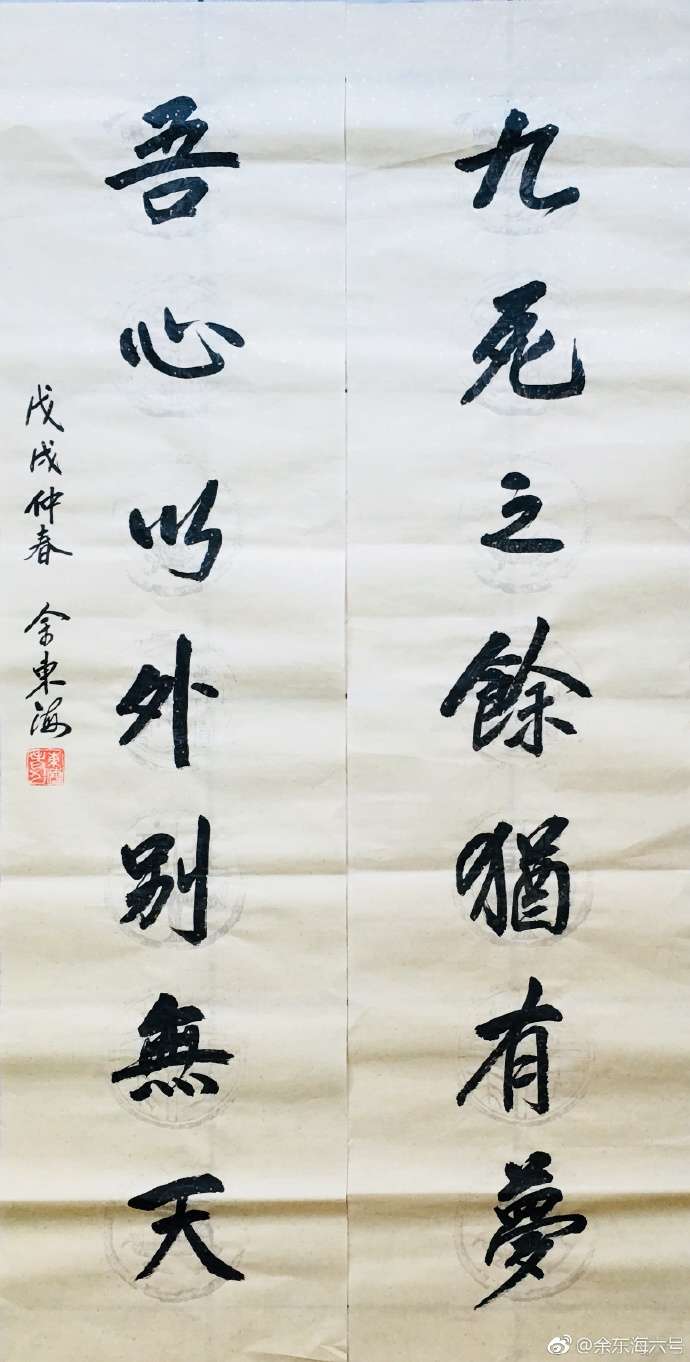 九死之餘猶有夢
吾心以外別無天
戊戌仲春 余東海
@余东海六号